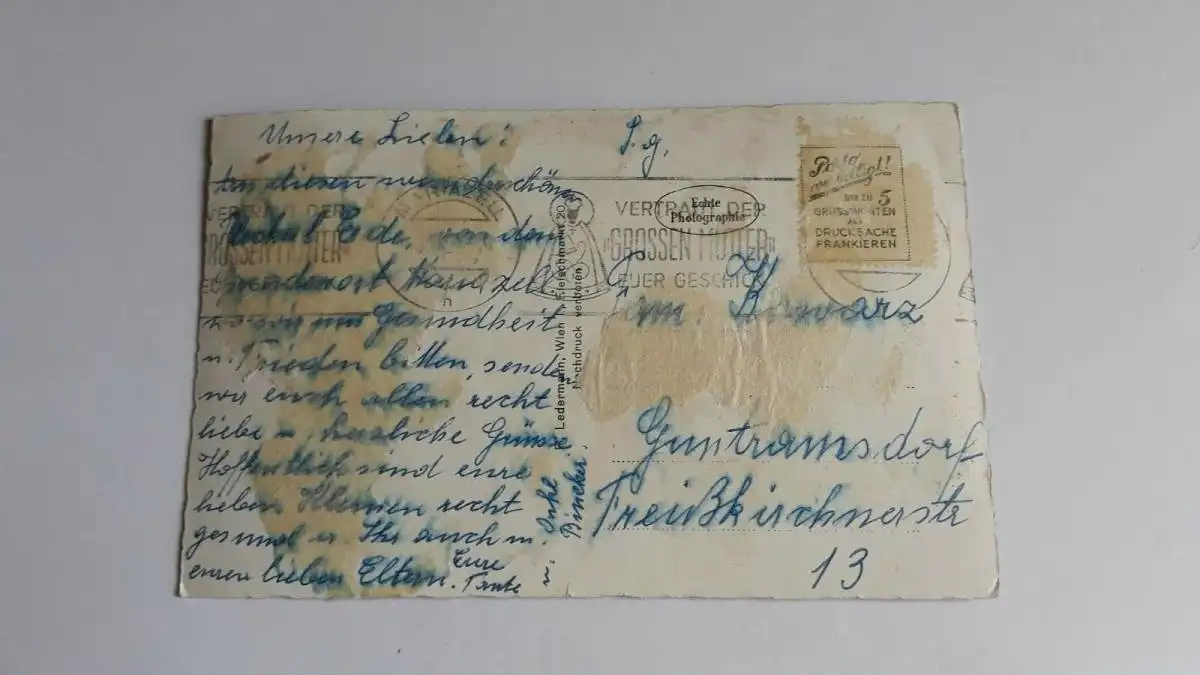 Unsere Lieben!
An diesen wunderschönen
Fleckal Erde, von dem
Wunderort Mariazell
wo wir um Gesundheit
u. Frieden bitten, senden
wir euch allen recht
liebe u. herzliche Grüsse.
Hoffentlich sind eure
lieben Kleinen recht
gesund u. Ihr auch u.
euren lieben Eltern. Eure
Tante
u. Onkl
Bincker
MARIAZELL
VERTRAUT DER
"GROSSEN MUTTER"
EUER GESCHICK
VERTRAUT DER
"GROSSEN MUTTER"
EUER GESCHICK
Ledermann, Wien I, Fleischmarkt 20
Nachdruck verboten
Echte
Photographie
Porto
BIS ZU 5
GRUSSWORTEN
ALS
DRUCKSACHE
FRANKIEREN
S. g.
Fam.
Guntramsdorf
Treißkirchnerstr
13